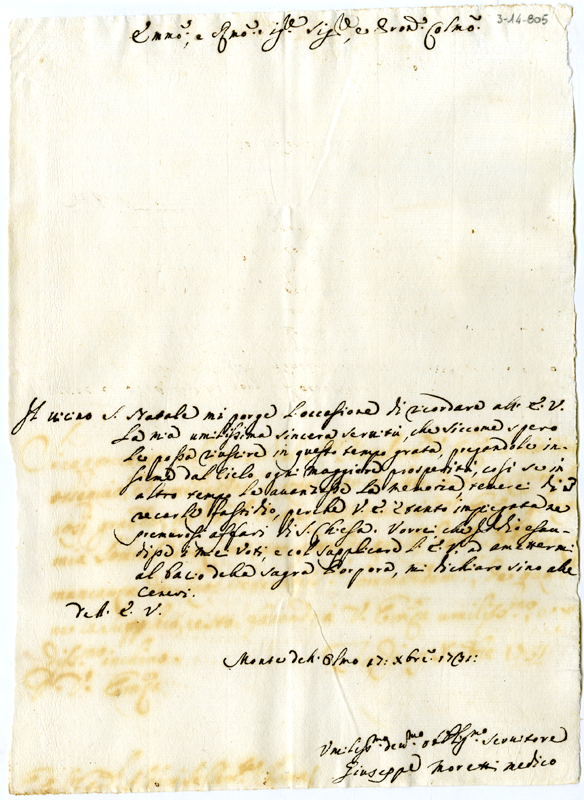 3-14-805
Emmo:, e Rmo: Sig:re Sig:re, e Pron: Colmo:
Il vicino S. Natale mi porge l'occasione di ricordare all' E. V.
la mia umilissima sincera servitù, che siccome spero
le possa riuscire in questo tempo grata, pregandole in-
sieme dal Cielo ogni maggiore prosperità, così se in
altro tempo la avanzassi la memoria, temerei di
recarle fastidio, perche V. E. è tanto impiegata ne
premurosi affari di S. Chiesa. Vorrei che Iddio esau-
disse i miei voti, e col supplicare l' E. V. ad ammettermi
al bacio della Sagra Porpora, mi dichiaro sino alle
ceneri.
Dell' E. V.
Monte dell' Olmo 17: Xbre: 1731:
Umilissmo devmo obbligmo Servitore
Giuseppe Moretti medico